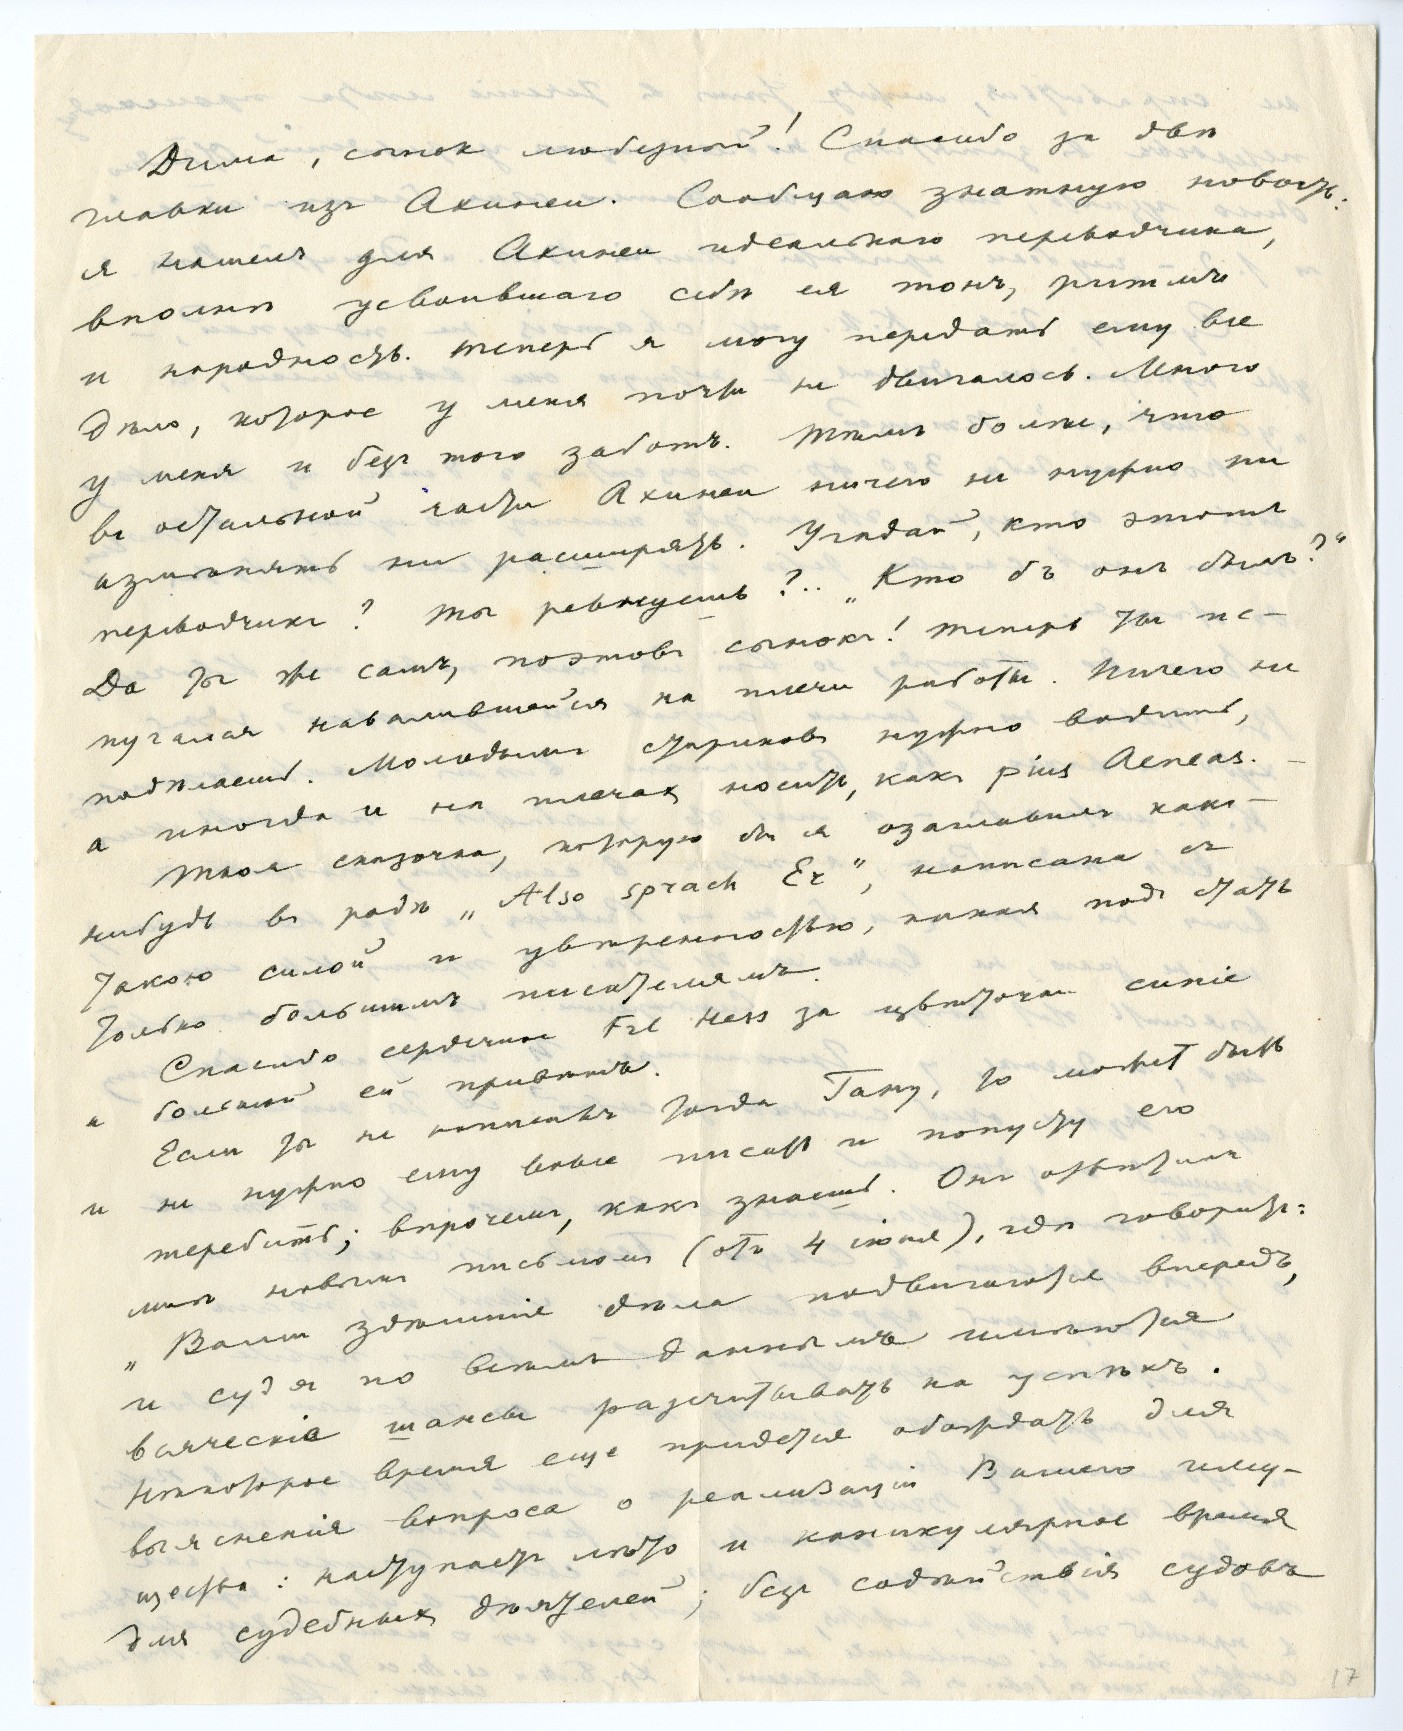 Дима, сынок любезной! Спасибо за двѣ
главки изъ Акинеи. Сообщаю знатную новость:
я нашелъ для Акинеи идеальнаго переводчика,
вполнѣ усвоившаго себѣ ея тонъ, ритмъ
и народность. Теперь я могу передать ему все
дѣло, которое у меня почти не двигалось. Много
у меня и безъ того заботъ. Тѣмъ болѣе, что
въ остальной части Акинеи ничего не нужно ни
измѣнять ни расширять. Угадай, кто этотъ
переводчикъ? Ты ревнуешь?.. „Кто бъ онъ былъ?“
Да ты же самъ, поэтовъ сынокъ! Теперь ты ис-
пугался навалившейся на плечи работы. Ничего не
подѣлаешь. Молодымъ стариковъ нужно водить,
а иногда и на плечах носить, какъ pius Aeneas. –
Твоя сказочка, которую бы я озаглавилъ какъ-
нибудь въ родѣ „Also sprach Er“, написана съ
такою силой и увѣренностью, какая под стать
только большимъ писателямъ.
Спасибо сердечное Frl Hess за цвѣточки синіе
и большой ей привѣтъ.
Если ты не написалъ тогда Гану, то может быть
и не нужно ему вовсе писать и попусту его
теребить; впрочемъ, какъ знаешь. Онъ отвѣтилъ
мнѣ новымъ письмомъ (отъ 4 іюня), гдѣ говоритъ:
„Ваши здѣшніе дѣла подвигаются впередъ,
и судя по всѣмъ даннымъ имѣются
всяческіе шансы разсчитывать на успѣхъ.
Нѣкоторое время еще придется обождать для
выясненія вопроса о реализаціи Вашего иму-
щества: наступаетъ лѣто и каникулярное время
для судебных дѣятелей; безъ содѣйствія судовъ
17